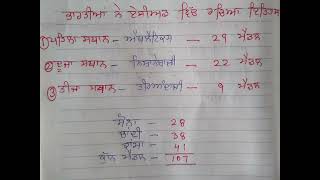 ਭਾਰਤੀਆਂ ਨੇ ਏਸ਼ੀਅਨ ਵਿੱਚ ਰਚਿਆ ਇਤਿਹਾਸ
① ਪਹਿਲਾ ਸਥਾਨ - ਅਥਲੈਟਿਕਸ - 29 ਮੈਡਲ
② ਦੂਜਾ ਸਥਾਨ - ਨਿਸ਼ਾਨੇਬਾਜ਼ੀ - 22 ਮੈਡਲ
③ ਤੀਜਾ ਸਥਾਨ - ਤੀਰਅੰਦਾਜ਼ੀ - 9 ਮੈਡਲ
ਸੋਨਾ - 28
ਚਾਂਦੀ - 38
ਕਾਂਸਾ - 41
ਕੁੱਲ ਮੈਡਲ - 107